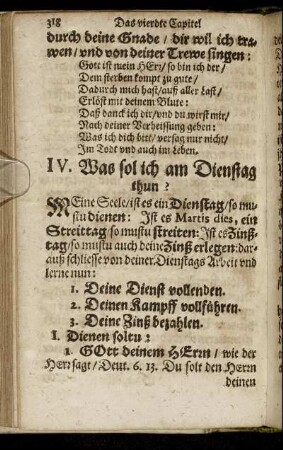 318 Das vierdte Capitel
durch deine Gnade / dir wil ich tra-
wen / vnd von deiner Trewe singen:
Gott ist mein HErr / so bin ich der /
Dem sterben kompt zu gute /
Dadurch mich hast / auß aller Last /
Erlöst mit deinem Blute:
Daß danck ich dir / vnd du wirst mir /
Nach deiner Verheissung geben:
Was ich dich bitt / versag mir nicht /
Im Todt vnd auch im Leben.
IV. Was sol ich am Dienstag
thun?
MEine Seele / ist es ein Dienstag / so mu-
stu dienen: Ist es Martis dies, ein
Streittag / so mustu streiten: Ist es Zinß-
tag / so mustu auch deine Zinß erlegen: dar-
auß schliesse von deiner Dienstags Arbeit vnd
lerne nun:
1. Deine Dienst vollenden.
2. Deinen Kampff vollführen.
3. Deine Zinß bezahlen.
I. Dienen soltu:
1. GOtt deinem HErrn / wie der
HErr sagt / Deut. 6. 13. Du solt den HErrn
deinen